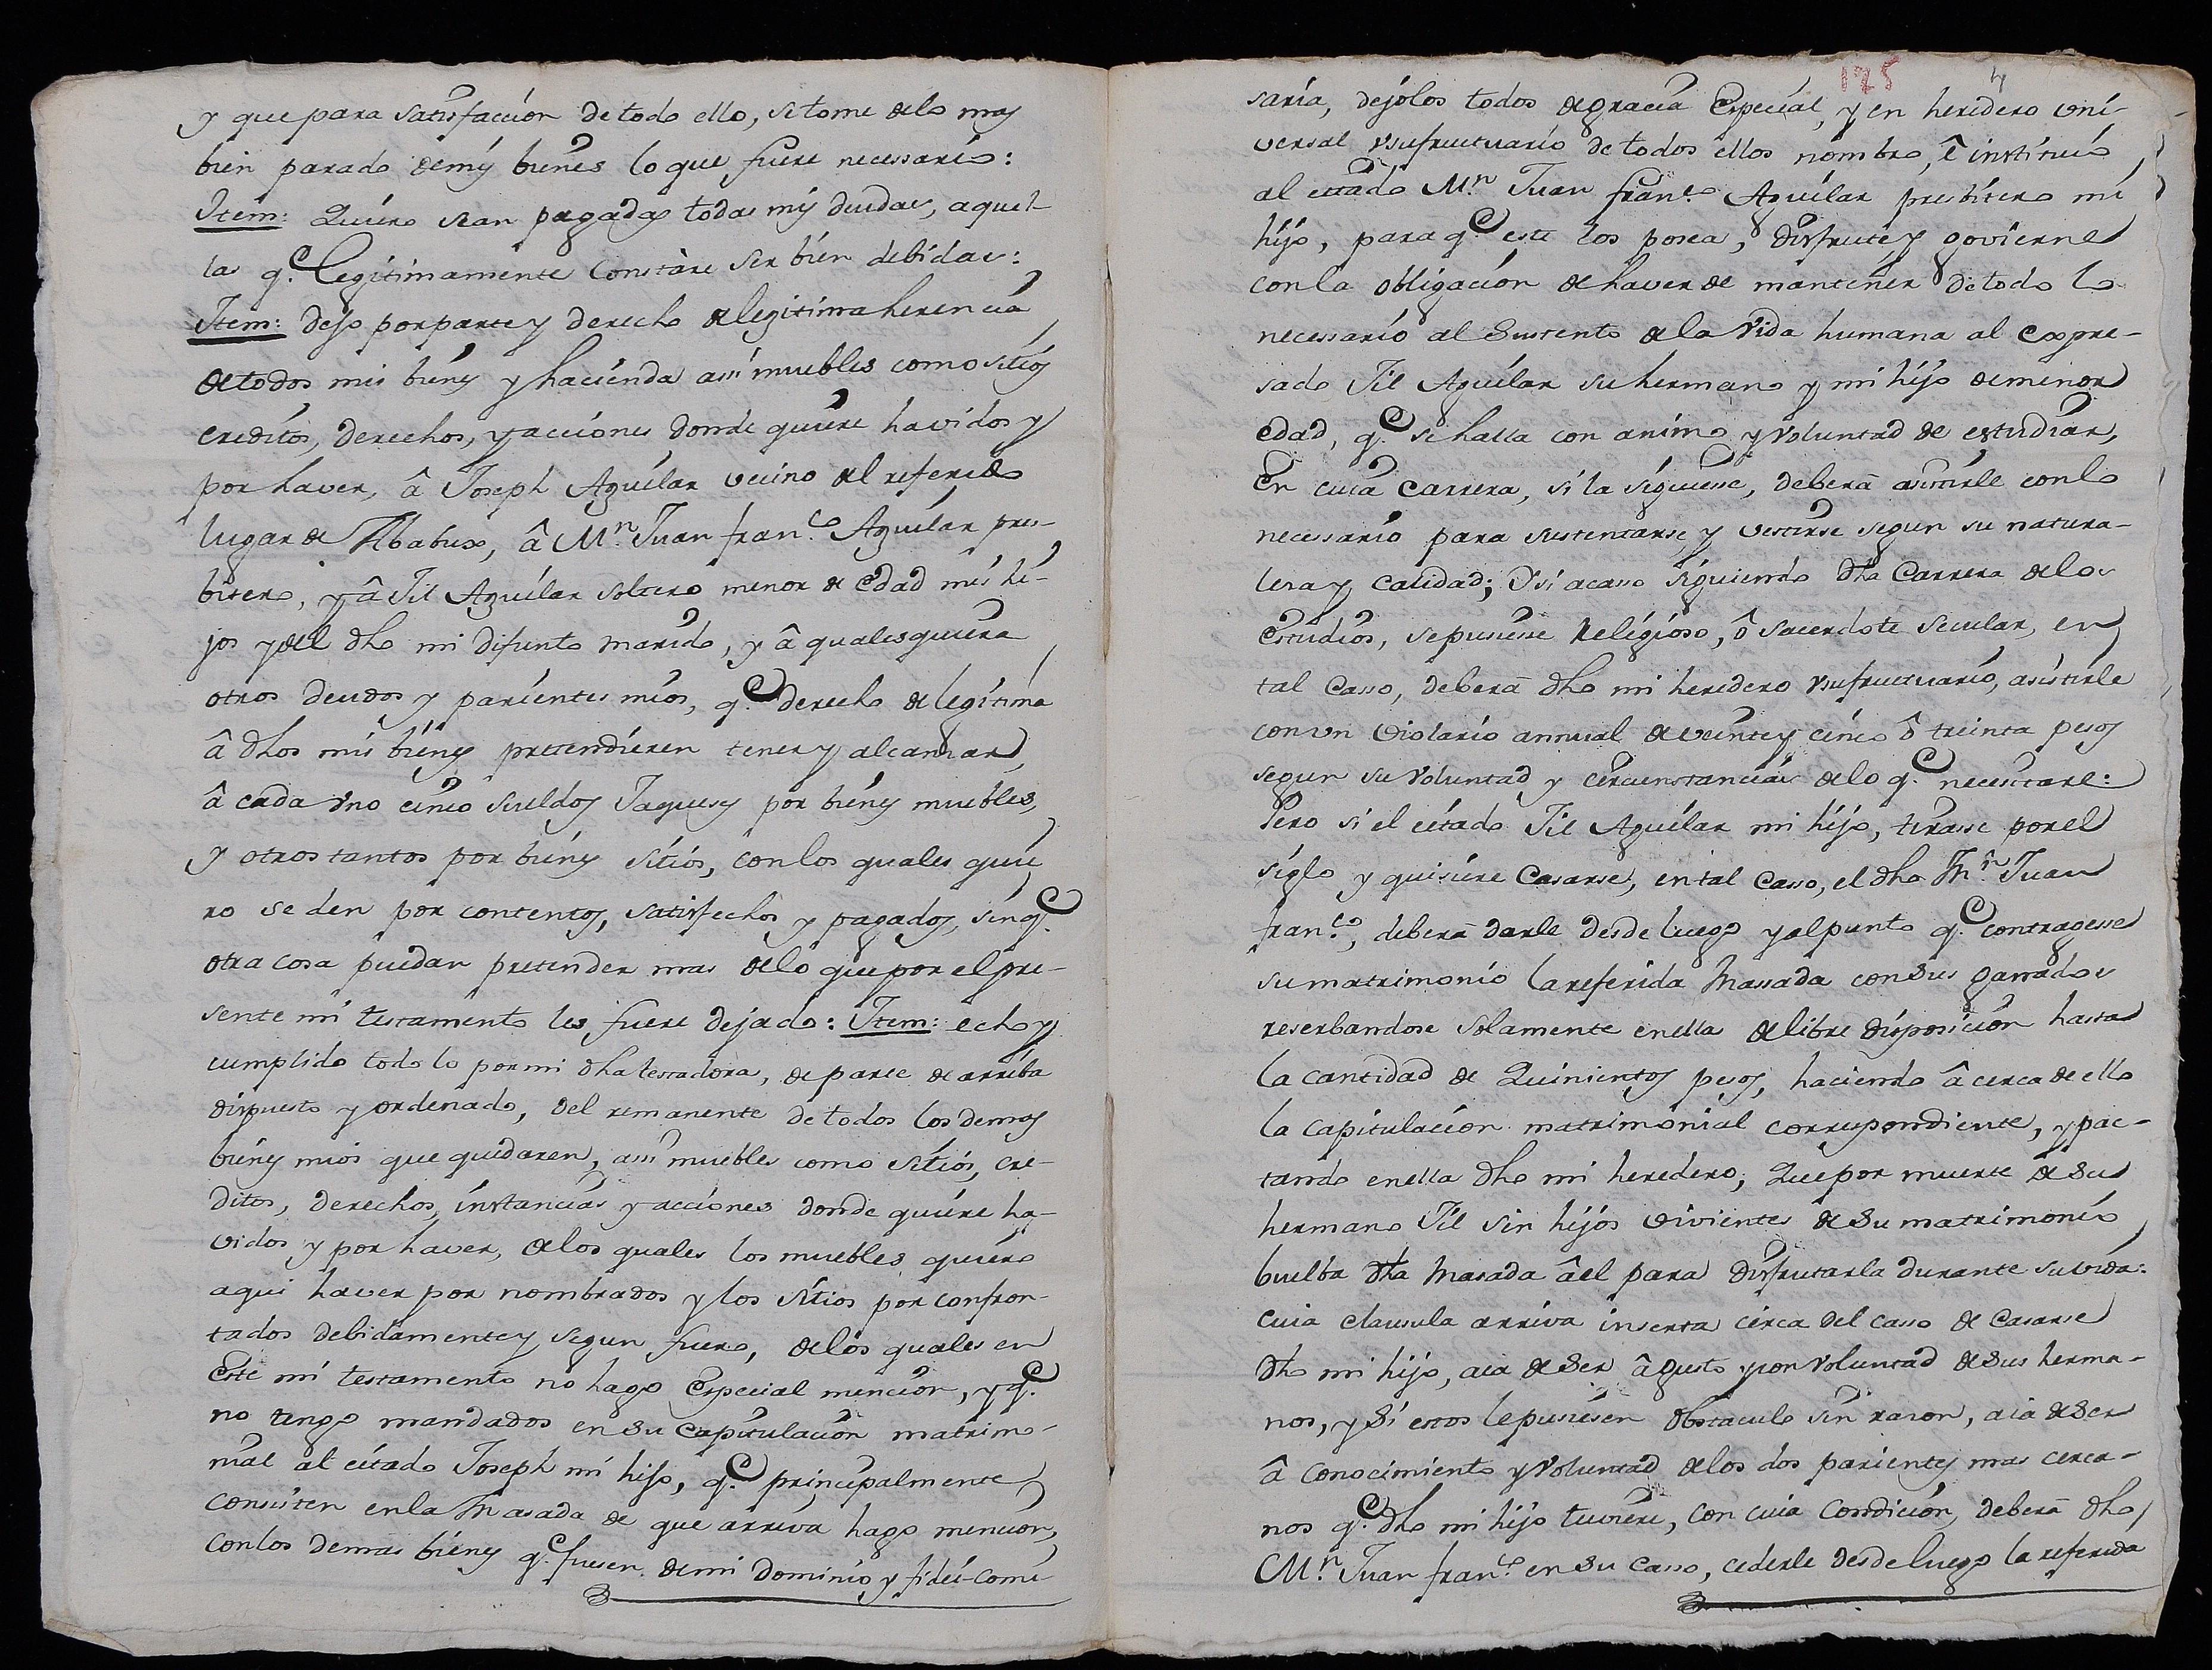 y que para satisfacción de todo ello, se tome de lo mas
bien parado de my bienes lo que fuere necessario:
Item: Quiero sean pagadas todas mis deudas, aquel-
las q.e legitimamente Constàre ser bien debidas:
Item: dejo por parte y derecho de legitima herencia
de todos mis bienes y hacienda assi muebles como sitios
creditos, derechos, y acciones donde quiere havidos y
por haver, â Joseph Aguilar vecino del referido
lugar de Ababux, â M.n Juan fran.co Aguilar pres-
bitero, y â Jil Aguilar soltero menor de edad mis hi-
jos y del dho mi difunto marido, y â qualesquiera
otros deudos y parientes mios, q.e derecho de legitima
â dhos mis bienes pretendieren tener y alcanzar,
â cada vno cinco sueldos Jaqueses por bienes muebles,
y otros tantos por bienes sitios, con los quales quie
ro se den por contentos, satisfechos y pagados, sin q.e
otra cosa puedan pretender mas de lo que por el pre-
sente mi testamento les fuere dejado: Item: echo y
cumplido todo lo por mi dha testadora, de parte de arriba
dispuesto y ordenado, del remanente de todos los demas
bienes mios que quedaren, assi muebles como sitios, cre-
ditos, derechos, instancias y acciones donde quiere ha-
vidos y por haver, de los quales los muebles quiero
aqui haver por nombrados y los sitios por confron-
tados debidamente y segun fuero, de los quales en
este mi testamento no hago especial mencion, y q.e
no tengo mandados en su capitulación matrimo-
nial al citado Joseph mi hijo, q.e principalmente
consisten en la Masada de que arriva hago mencion,
con los demas bienes q.e fuesen de mi dominio y fidei-comi
175 4
saria, dejolos todos de gracia especial, y en heredero uni-
versal vsufructuario de todos ellos nombro, ê instituio
al citado M.n Juan fran.co Aguilar presbitero mi
hijo, para q.e este los posea, disfrute y govierne
con la obligación de haver de mantener de todo lo
necessario al sustento de la vida humana al expre-
sado Jil Aguilar su hermano y mi hijo de menor
edad, q.e se halla con animo y voluntad de estudiar,
En cuia carrera, si la siguiesse, deberà asistirle con lo
necessario para sustentarse, y vestirse segun su natura-
leza y calidad; Y si acaso siguiendo dha Carrera de los
estudios, se pusiesse Religioso, ô sacerdote secular, en
tal Casso, deberà dho mi heredero vsufructuario, asistirle
con vn violario annual de veinte y cinco ô treinta pesos
segun su voluntad y circunstancias de lo q.e necesitare:
Pero si el citado Jil Aguilar mi hijo, tirasse por el
siglo y quisiere casarse, en tal Casso, el dho M.n Juan
fran.co, deberà darle desde luego y al punto q.e contragesse
su matrimonio la referida Masada con sus ganados
reserbandose solamente en ella de libre disposición hasta
la cantidad de Quinientos pesos, haciendo â cerca de ello
la capitulación matrimonial correspondiente, y pac-
tando en ella dho mi heredero, Que por muerte de su
hermano Jil sin hijos vivientes de su matrimonio
buelba dha Masada â el para disfrutarla durante su vida:
cuia clausula arriva inserta cerca del casso de Casarse
dho mi hijo, aia de ser â gusto y con voluntad de sus herma-
nos, y si estos le pusiesen obstaculo sin razon, aia de ser
â conocimiento y voluntad de los dos parientes mas cerca-
nos q.e dho mi hijo tuviere, con cuia condición, deberà dho
M.n Juan fran.co en su casso, cederle desde luego la referida